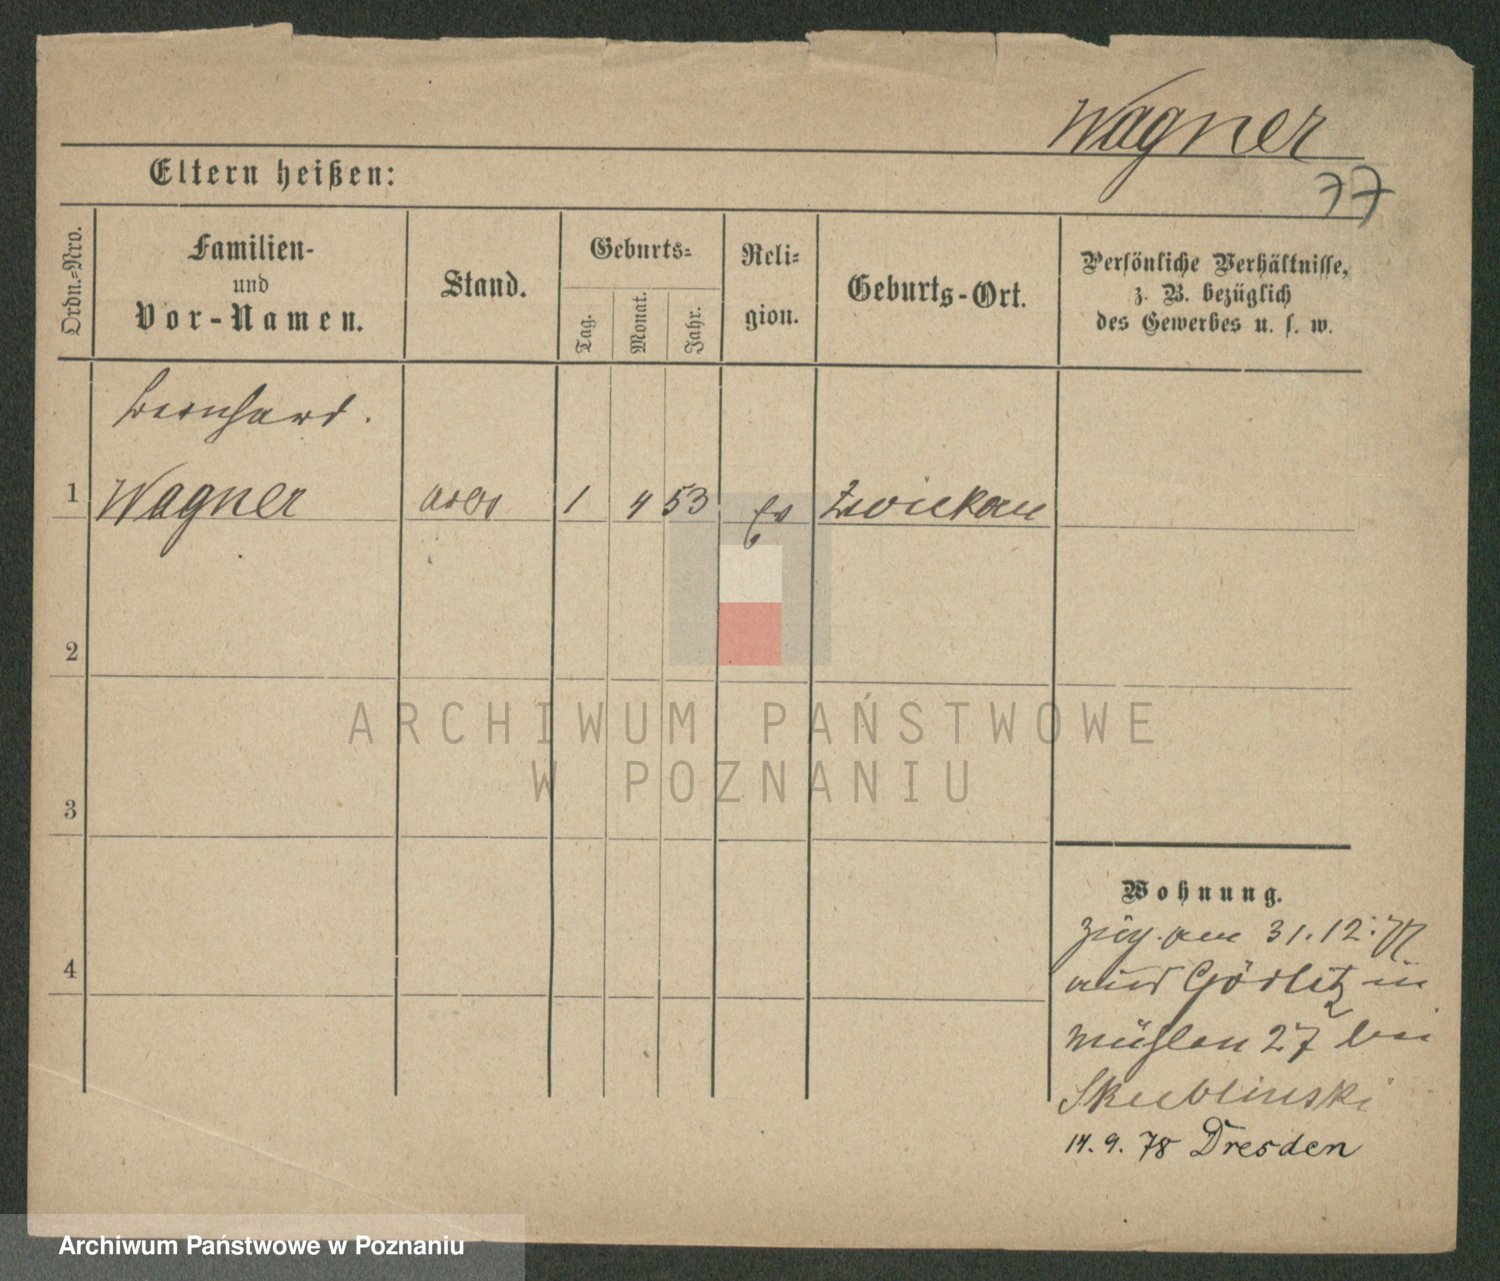 Wagner
77
Eltern heißen:
Ordn.=Nro.
Familien-
und
Vor-Namen.
Stand.
Geburts=
Tag.
Monat.
Jahr.
Reli=
gion.
Geburts-Ort.
Persönliche Verhältnisse,
z. B. bezüglich
des Gewerbes u. s. w.
Bernhard.
1 Wagner 1 4 53 ev Zwickau
2
ARCHIWUM PAŃSTWOWE
W POZNANIU
3
Wohnung.
zug. am 31.12.77
aus Görlitz in
Mühlen 27 bei
Skublinski
14. 9. 78 Dresden
4
Archiwum Państwowe w Poznaniu